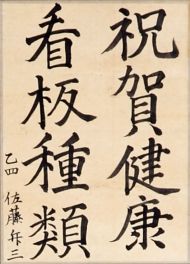 祝賀健康
看板種類
乙四 佐藤